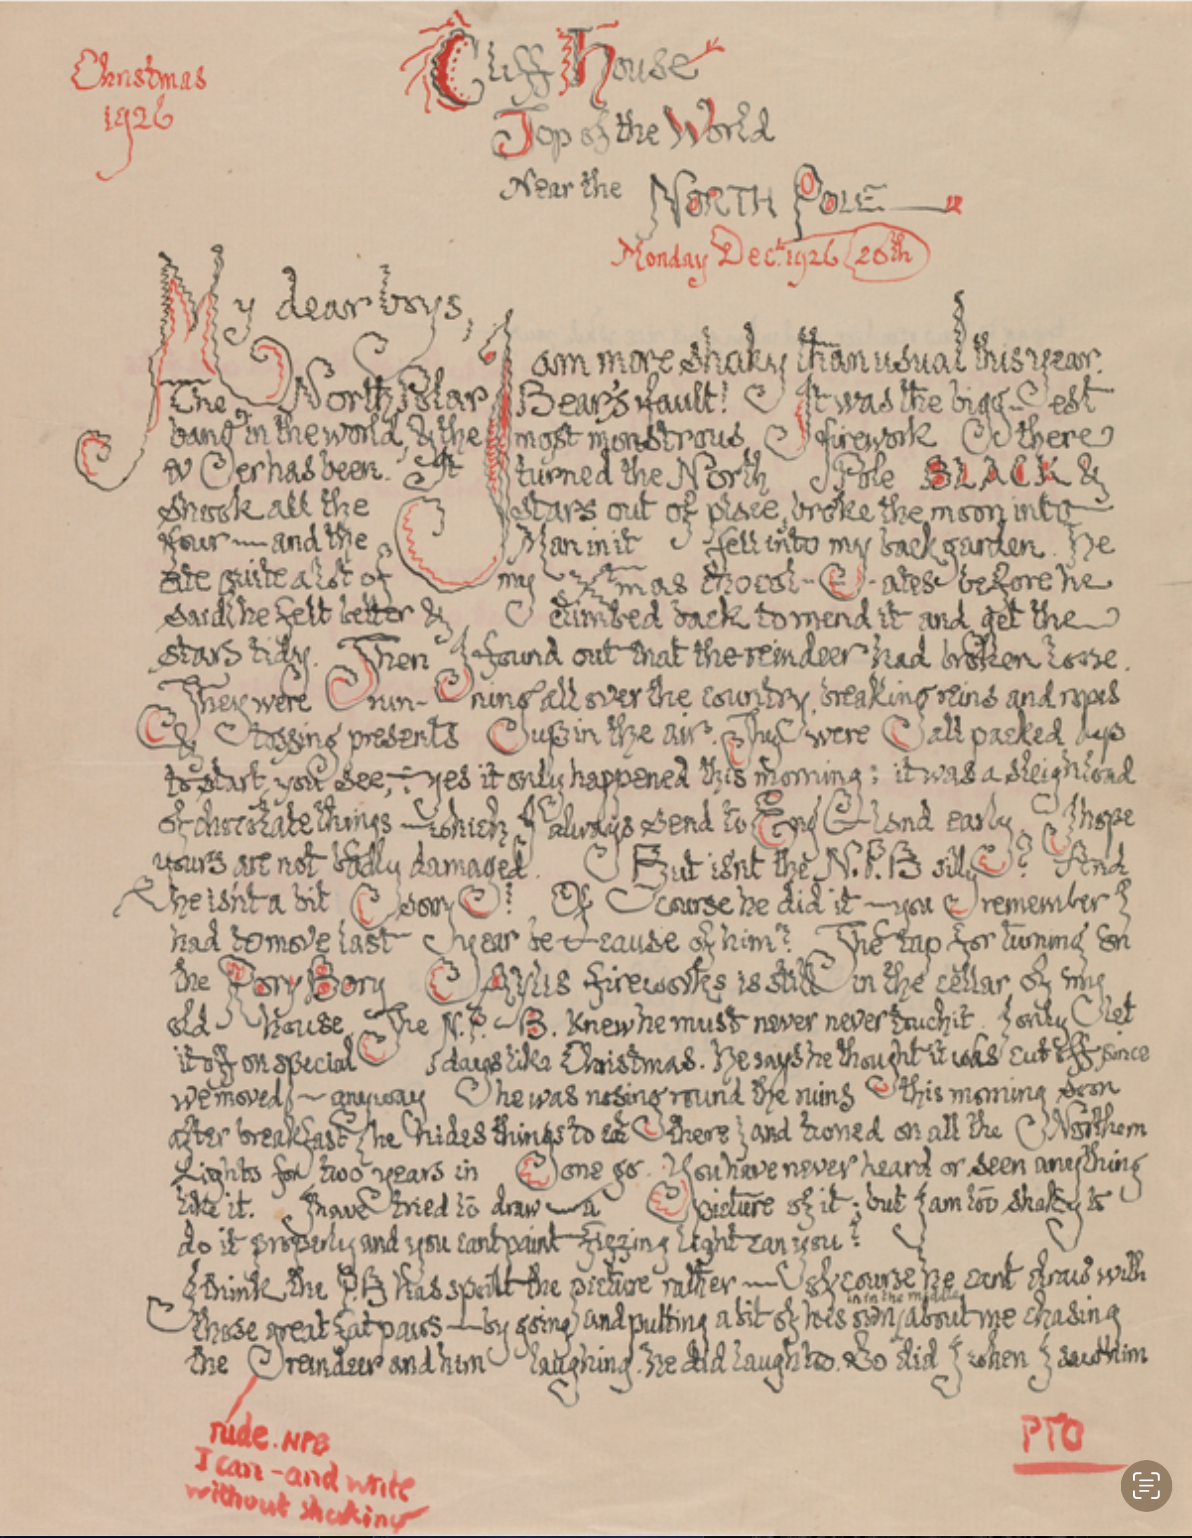 Christmas
1926
Cliff House
Top of the World
Near the
NORTH POLE
Monday Dec. 1926 20th
My dear boys,
I am more shaky than usual this year.
The North Polar Bear's fault! It was the bigg-est
bang in the world, & the most monstrous firework there
ever has been. It turned the North Pole BLACK &
shook all the stars out of place, broke the moon into
four — and the Man in it fell into my back garden. He
ate quite a lot of my Xmas chocol-ates before he
said he felt better & climbed back to mend it and get the
stars tidy. Then I found out that the reindeer had broken loose.
They were run-ning all over the country, breaking reins and ropes
& tossing presents up in the air. They were all packed up
to start, you see, — yes it only happened this morning: it was a sleighload
of chocolate things — which I always send to England early. I hope
yours are not badly damaged. But isnt the N.P.B silly? And
he isnt a bit sorry! Of course he did it — you remember I
had to move last year because of him? The tap for turning on
the Rory Bory Aylis fireworks is still in the cellar of my
old house. The N.P.B. knew he must never never touch it. I only let
it off on special days like Christmas. He says he thought it was cut off since
we moved — anyway he was nosing round the ruins this morning soon
after breakfast (he hides things to eat there) and turned on all the Northern
Lights for two years in one go. You have never heard or seen anything
like it. I have tried to draw a picture of it; but I am too shaky to
do it properly and you cant paint fizzing light can you?
I think the P.B has spoilt the picture rather — of course he cant draw with
those great fat paws — by going and putting a bit of his own in in the middle about me chasing
the reindeer and him laughing. He did laugh too. So did I when I saw him
rude. NPB
I can - and write
without shaking
PTO